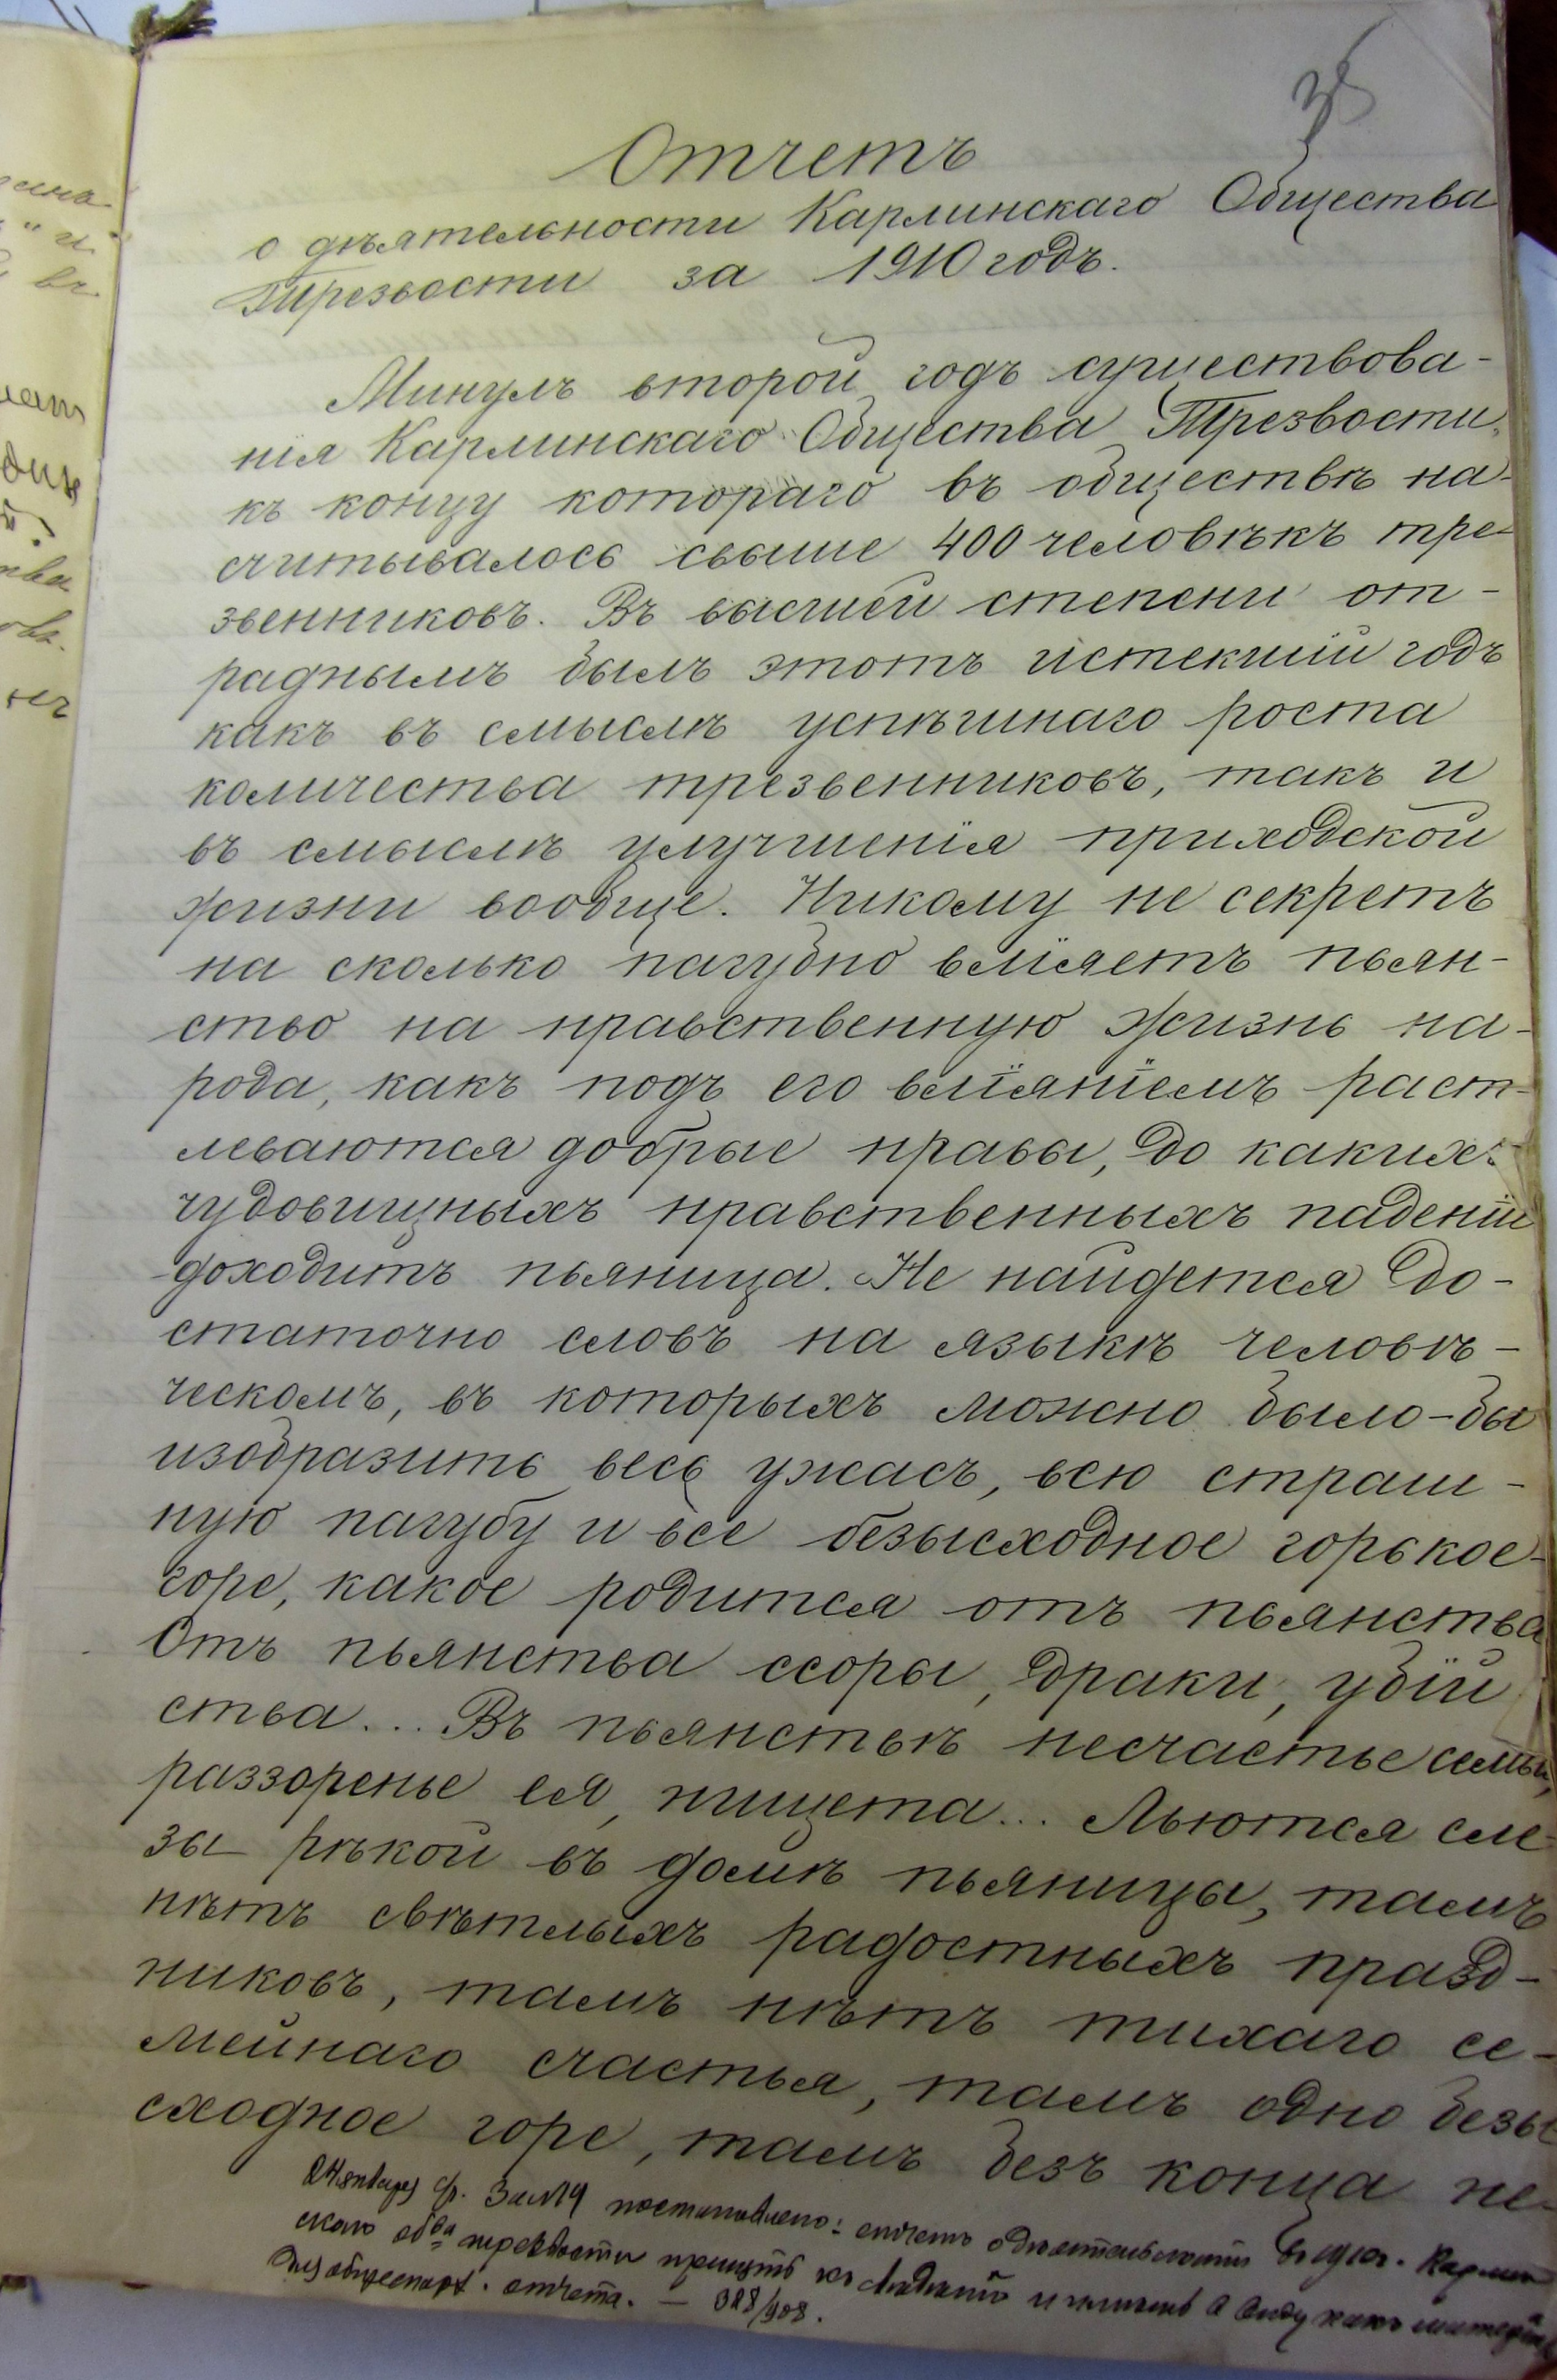 38
Отчетъ
о дѣятельности Карлинскаго Общества
Трезвости за 1910 годъ.
Минулъ второй годъ существова-
нія Карлинскаго Общества Трезвости,
къ концу котораго въ обществѣ на-
считывалось свыше 400 человѣкъ тре-
звенниковъ. Въ высшей степени от-
раднымъ былъ этотъ истекшій годъ
какъ въ смыслѣ успѣшнаго роста
количества трезвенниковъ, такъ и
въ смыслѣ улучшенія приходской
жизни вообще. Никому не секретъ
на сколько пагубно вліяетъ пьян-
ство на нравственную жизнь на-
рода, какъ подъ его вліяніемъ раст-
леваются добрые нравы, до какихъ
чудовищныхъ нравственныхъ паденій
доходитъ пьяница. Не найдется до-
статочно словъ на языкѣ человѣ-
ческомъ, въ которыхъ можно было-бы
изобразить весь ужасъ, всю страш-
ную пагубу и все безысходное горькое-
горе, какое родится отъ пьянства
Отъ пьянства ссоры, драки, убій
ства... Въ пьянствѣ несчастье семьи,
раззоренье ея, нищета... Льются сле-
зы рѣкой въ домѣ пьяницы, тамъ
нѣтъ свѣтлыхъ радостныхъ празд-
никовъ, тамъ нѣтъ тихаго се-
мейнаго счастья, тамъ одно безы
сходное горе, тамъ безъ конца не-
24 января ср. За №14 постановлено: отчетъ о дѣятельности въ 1910 г. Карлин
скаго об-ва трезвости къ и въ виду какъ
для отчета. — 328/908.